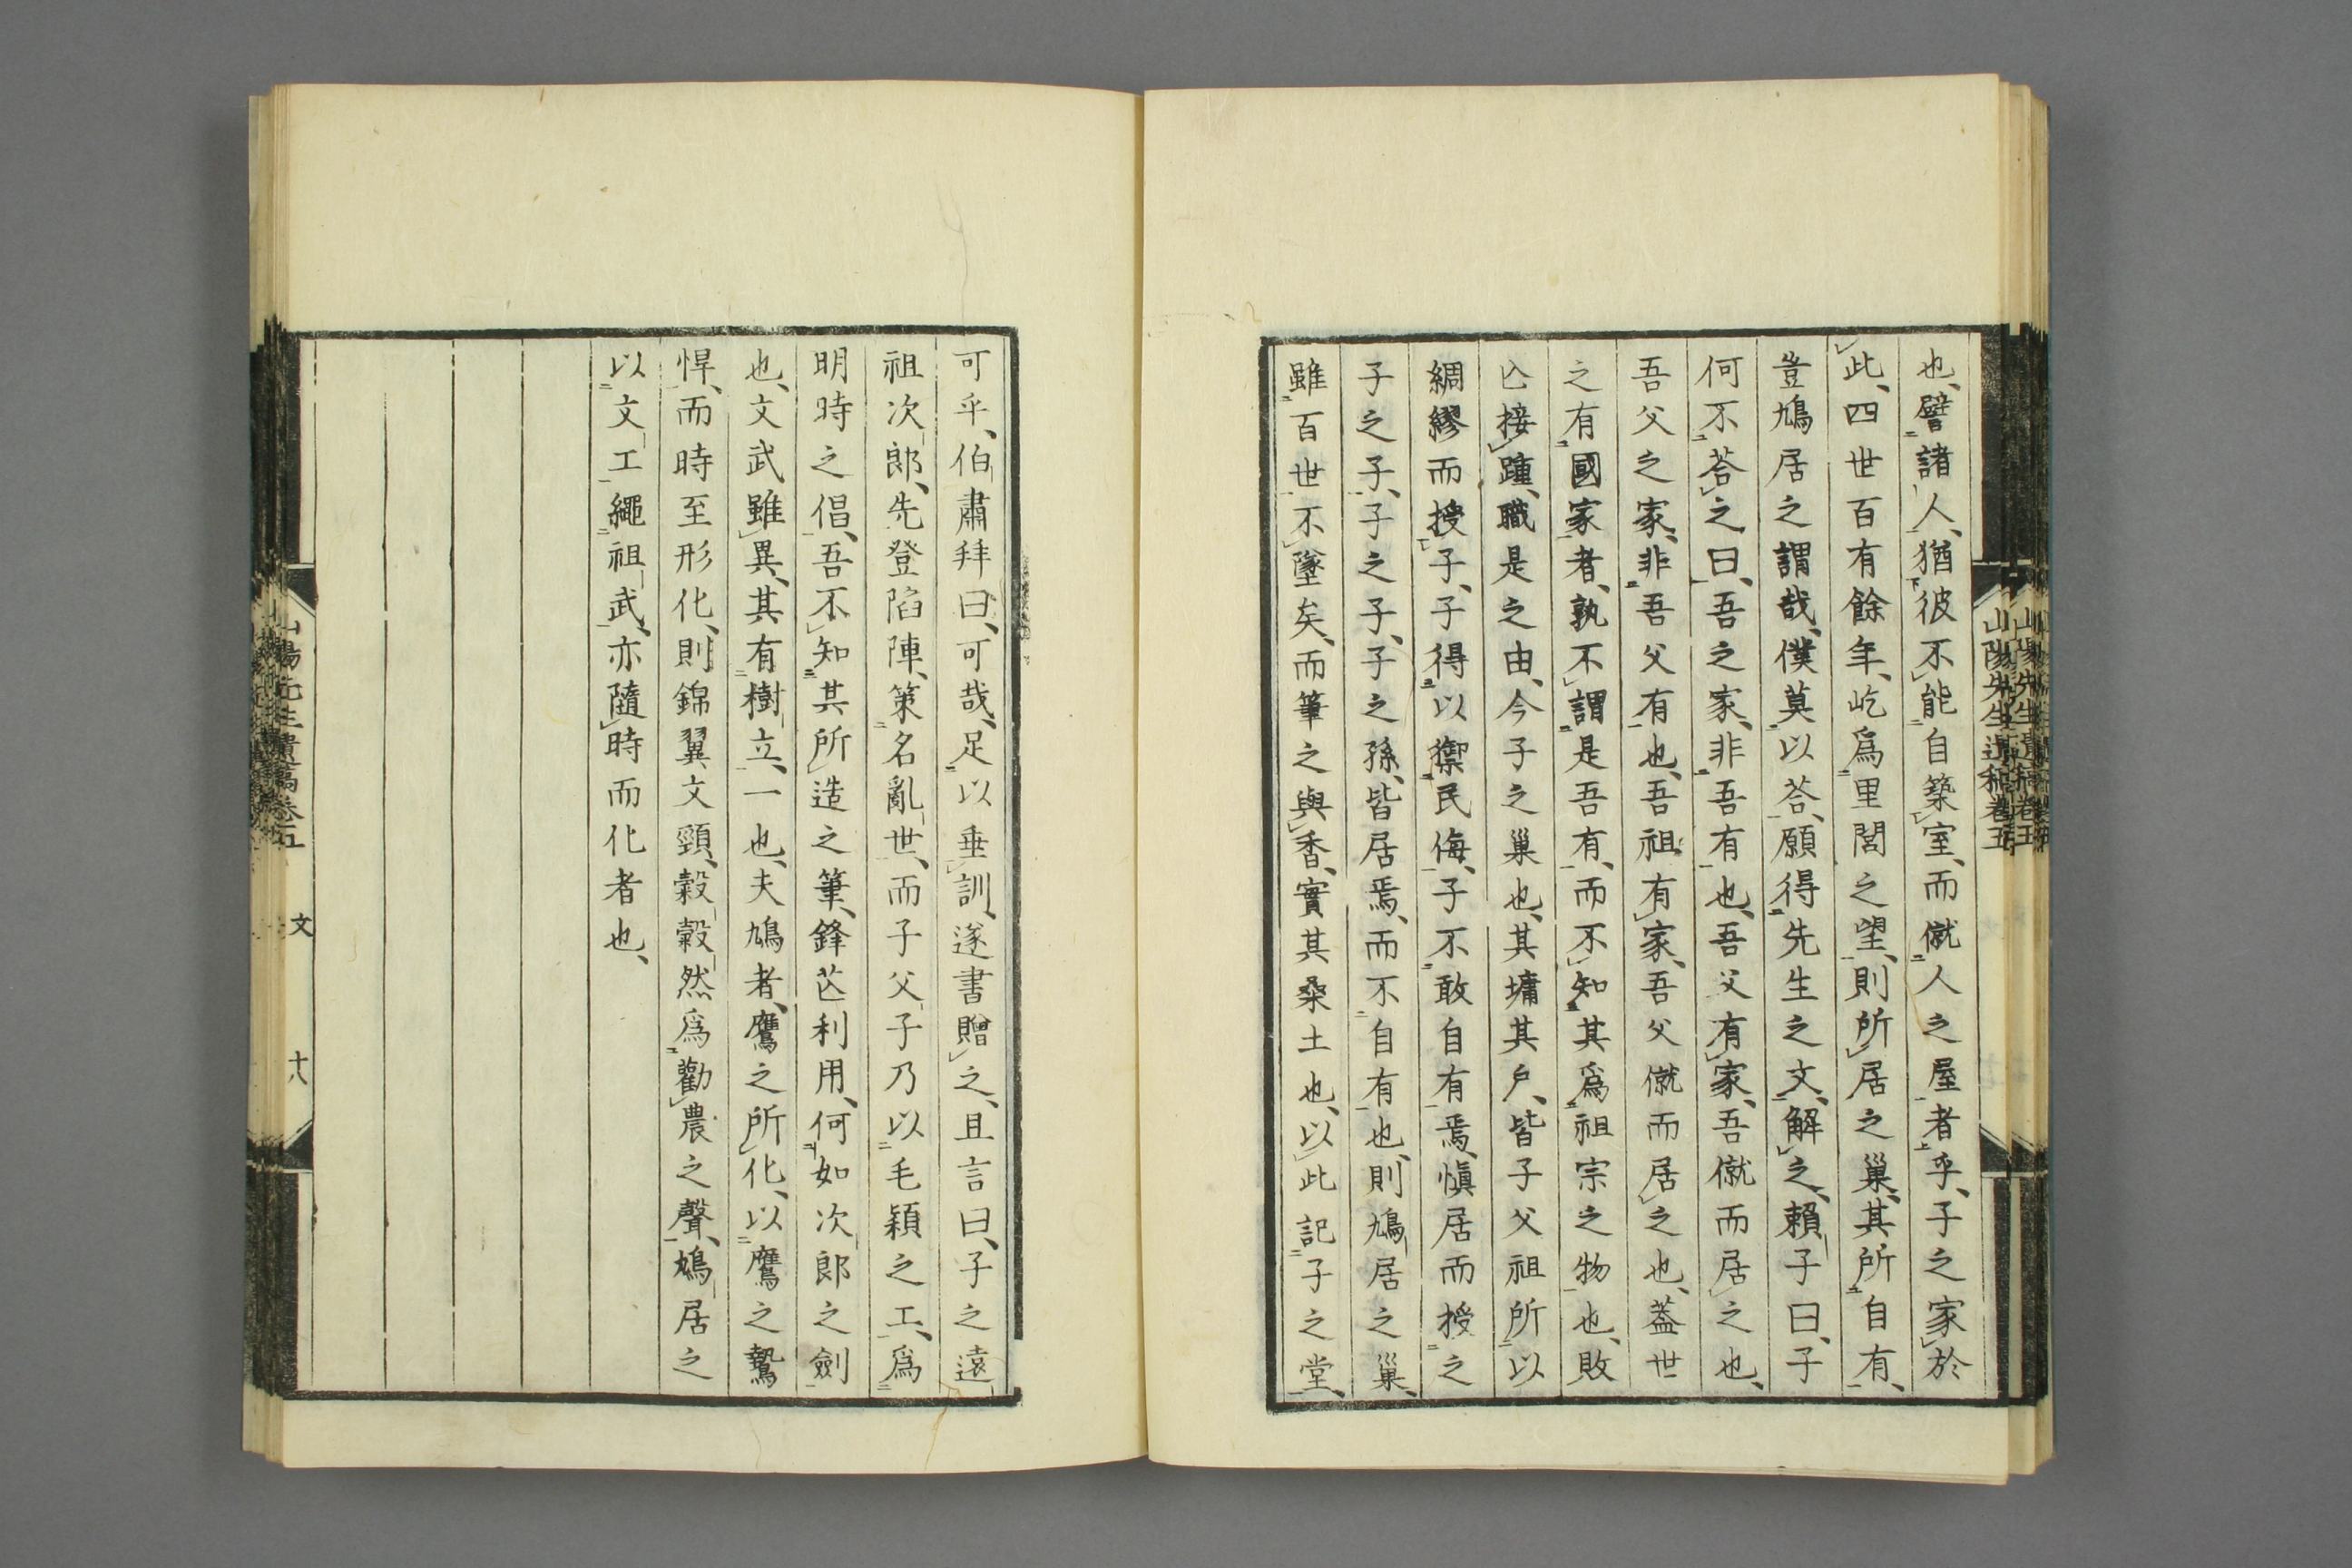 也、譬諸人、猶彼不能自築室、而僦人之屋者乎、子之家於
此、四世百有餘年、屹爲里閭之望、則所居之巢、其所自有、
豈鳩居之謂哉、僕莫以荅、願得先生之文、解之、賴子曰、子
何不荅之曰、吾之家、非吾有也、吾父有家、吾僦而居之也、
吾父之家、非吾父有也、吾祖有家、吾父僦而居之也、葢世
之有國家者、孰不謂是吾有、而不知其爲祖宗之物也、敗
亾接踵、職是之由、今子之巢也、其墉其戶、皆子父祖所以
綢繆而授子、子得以禦民侮、子不敢自有焉、愼居而授之
子之子、子之子、子之孫、皆居焉、而不自有也、則鳩居之巢、
雖百世不墜矣、而筆之與香、實其桑土也、以此記子之堂、
可乎、伯肅拜曰、可哉、足以垂訓、遂書贈之、且言曰、子之遠
祖次郎、先登陷陣、策名亂世、而子父子乃以毛穎之工、爲
明時之倡、吾不知其所造之筆、鋒芒利用、何如次郎之劍
也、文武雖異、其有樹立、一也、夫鳩者、鷹之所化、以鷹之鷙
悍、而時至形化、則錦翼文頸、穀穀然爲勸農之聲、鳩居之
以文工繩祖武、亦隨時而化者也、
山陽先生遺稿卷五
文
十八